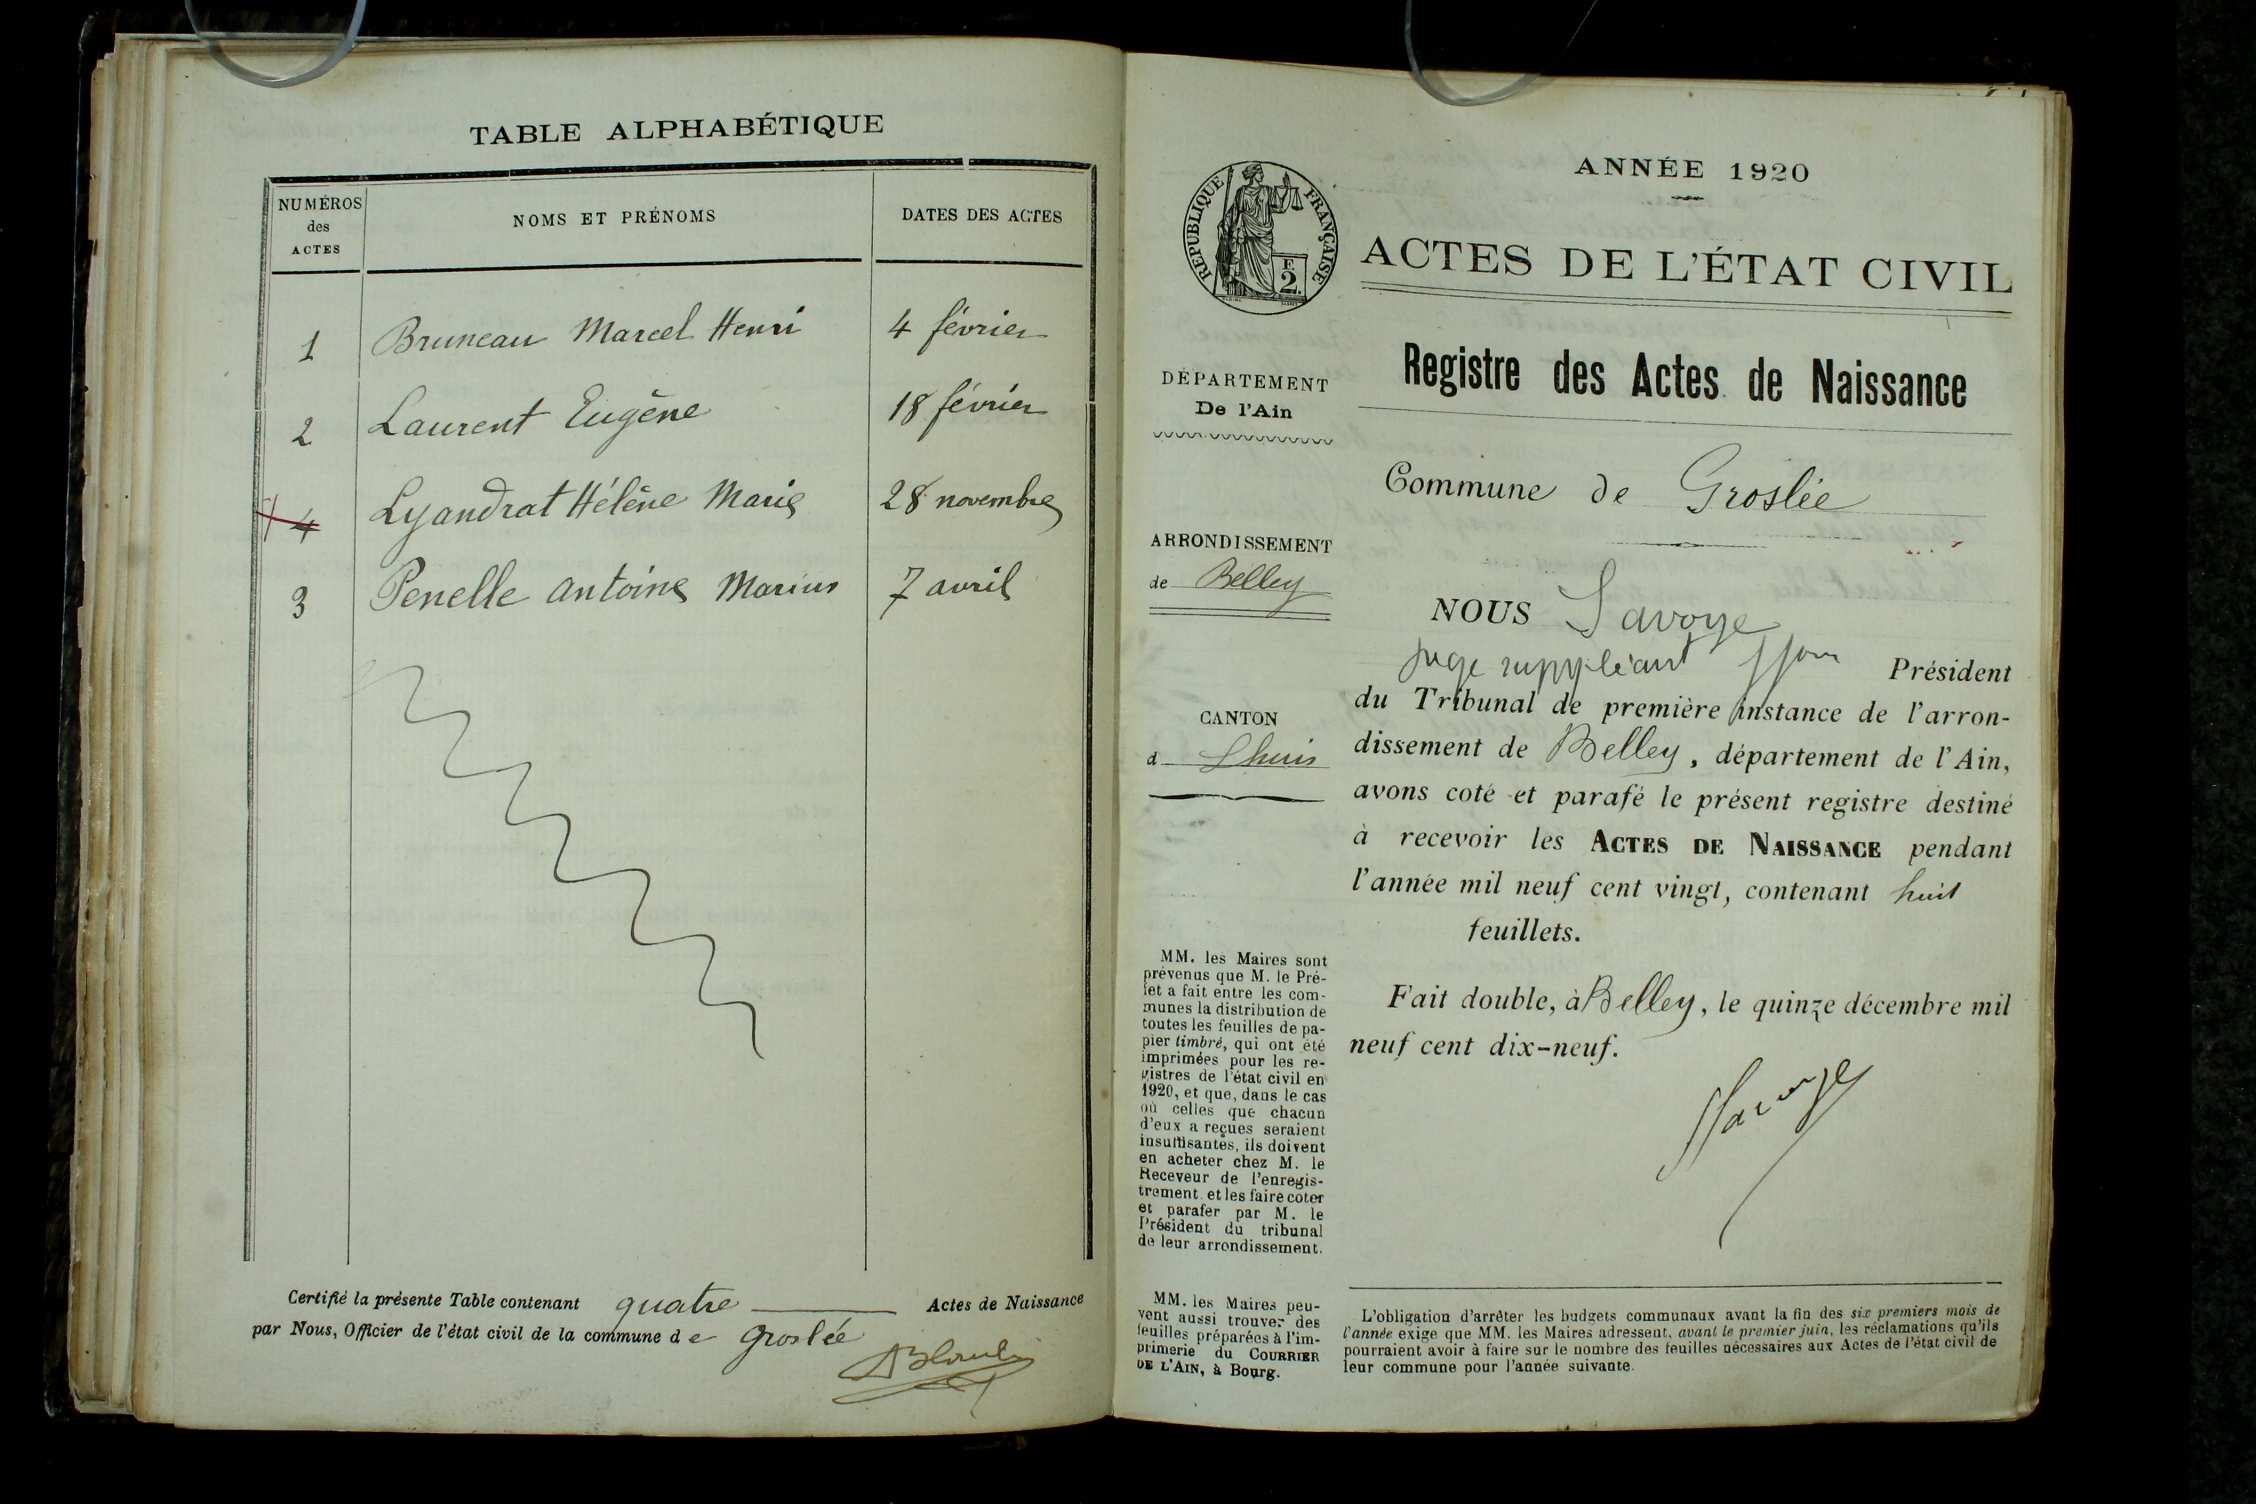 TABLE ALPHABÉTIQUE
NUMÉROS
des
ACTES
NOMS ET PRÉNOMS
DATES DES ACTES
1 Bruneau Marcel Henri 4 février
2 Laurent Eugène 18 février
4 Lyandrat Hélène Marie 28 novembre
3 Penelle Antoine Marius 7 avril
Certifié la présente Table contenant quatre Actes de Naissance
par Nous, Officier de l'état civil de la commune de Groslée
ANNÉE 1920
RÉPUBLIQUE FRANÇAISE
F.
2.
ACTES DE L'ÉTAT CIVIL
Registre des Actes de Naissance
DÉPARTEMENT
De l'Ain
Commune de Groslée
ARRONDISSEMENT
de Belley
CANTON
d Lhuis
NOUS Savoye
Juge suppléant Président
du Tribunal de première instance de l'arron-
dissement de Belley, département de l'Ain,
avons coté et parafé le présent registre destiné
à recevoir les ACTES DE NAISSANCE pendant
l'année mil neuf cent vingt, contenant huit
feuillets.
Fait double, à Belley, le quinze décembre mil
neuf cent dix-neuf.
Savoye
MM. les Maires sont
prévenus que M. le Pré-
fet a fait entre les com-
munes la distribution de
toutes les feuilles de pa-
pier timbré, qui ont été
imprimées pour les re-
gistres de l'état civil en
1920, et que, dans le cas
où celles que chacun
d'eux a reçues seraient
insuffisantes, ils doivent
en acheter chez M. le
Receveur de l'enregis-
trement et les faire coter
et parafer par M. le
Président du tribunal
de leur arrondissement.
MM. les Maires peu-
vent aussi trouver des
feuilles préparées à l'im-
primerie du COURRIER
DE L'AIN, à Bourg.
L'obligation d'arrêter les budgets communaux avant la fin des six premiers mois de
l'année exige que MM. les Maires adressent, avant le premier juin, les réclamations qu'ils
pourraient avoir à faire sur le nombre des feuilles nécessaires aux Actes de l'état civil de
leur commune pour l'année suivante.